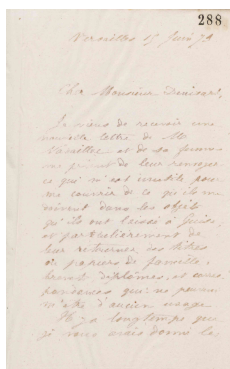 288
Versailles 15 Juin 73
Cher Monsieur
Je viens de recevoir une
nouvelle lettre de Mr
et de sa femme
me priant de leur renvoyer
ce qui m'est inutile pour
me couvrir de ce qu'ils me
doivent dans les objets
qu'ils ont laissés à Guise,
et particulièrement de
leur retourner des titres
et papiers de famille,
brevets, diplômes, et
qui ne peuvent
m'être d'aucun usage
Il y a longtemps que
je vous avais donné la